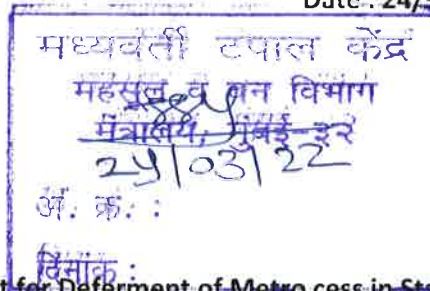 Date : 24/
मध्यवर्ती टपाल केंद्र
महसूल व वन विभाग
मंत्रालय, मुंबई-३२
2५/03/22
अं. क्र. :
दिनांक :
for Deferment of Metro cess in